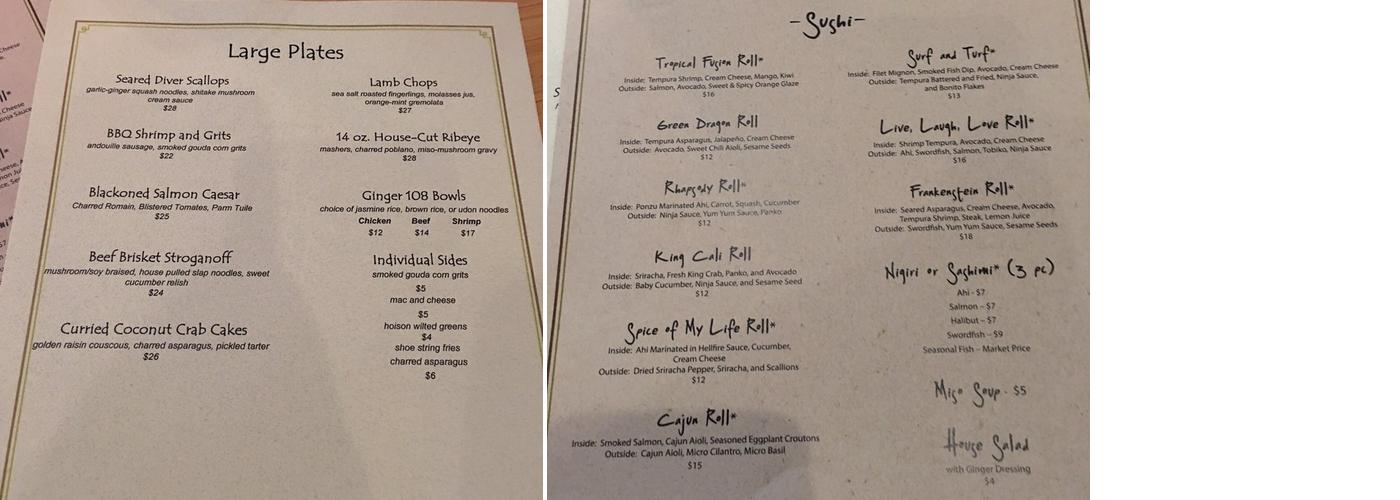 Large Plates
Seared Diver Scallops
garlic-ginger squash noodles, shitake mushroom
cream sauce
$28
BBQ Shrimp and Grits
andouille sausage, smoked gouda corn grits
$22
Blackoned Salmon Caesar
Charred Romain, Blistered Tomates, Parm Tuile
$25
Beef Brisket Stroganoff
mushroom/soy braised, house pulled slap noodles, sweet
cucumber relish
$24
Curried Coconut Crab Cakes
golden raisin couscous, charred asparagus, pickled tarter
$26
Lamb Chops
sea salt roasted fingerlings, molasses jus,
orange-mint gremolata
$27
14 oz. House-Cut Ribeye
mashers, charred poblano, miso-mushroom gravy
$28
Ginger 108 Bowls
choice of jasmine rice, brown rice, or udon noodles
Chicken Beef Shrimp
$12 $14 $17
Individual Sides
smoked gouda corn grits
$5
mac and cheese
$5
hoison wilted greens
$4
shoe string fries
charred asparagus
$6
-Sushi-
Tropical Fusion Roll*
Inside: Tempura Shrimp, Cream Cheese, Mango, Kiwi
Outside: Salmon, Avocado, Sweet & Spicy Orange Glaze
$16
Green Dragon Roll
Inside: Tempura Asparagus, Jalapeño, Cream Cheese
Outside: Avocado, Sweet Chili Aioli, Sesame Seeds
$12
Rhapsody Roll*
Inside: Ponzu Marinated Ahi, Carrot, Squash, Cucumber
Outside: Ninja Sauce, Yum Yum Sauce, Panko
$12
King Cali Roll
Inside: Sriracha, Fresh King Crab, Panko, and Avocado
Outside: Baby Cucumber, Ninja Sauce, and Sesame Seed
$12
Spice of My Life Roll*
Inside: Ahi Marinated in Hellfire Sauce, Cucumber,
Cream Cheese
Outside: Dried Sriracha Pepper, Sriracha, and Scallions
$12
Cajun Roll*
Inside: Smoked Salmon, Cajun Aioli, Seasoned Eggplant Croutons
Outside: Cajun Aioli, Micro Cilantro, Micro Basil
$15
Surf and Turf*
Inside: Filet Mignon, Smoked Fish Dip, Avocado, Cream Cheese
Outside: Tempura Battered and Fried, Ninja Sauce,
and Bonito Flakes
$13
Live, Laugh, Love Roll*
Inside: Shrimp Tempura, Avocado, Cream Cheese
Outside: Ahi, Swordfish, Salmon, Tobiko, Ninja Sauce
$16
Frankenstein Roll*
Inside: Seared Asparagus, Cream Cheese, Avocado,
Tempura Shrimp, Steak, Lemon Juice
Outside: Swordfish, Yum Yum Sauce, Sesame Seeds
$18
Nigiri or Sashimi* (3 pc)
Ahi - $7
Salmon – $7
Halibut – $7
Swordfish – $9
Seasonal Fish – Market Price
Miso Soup - $5
House Salad
with Ginger Dressing
$4